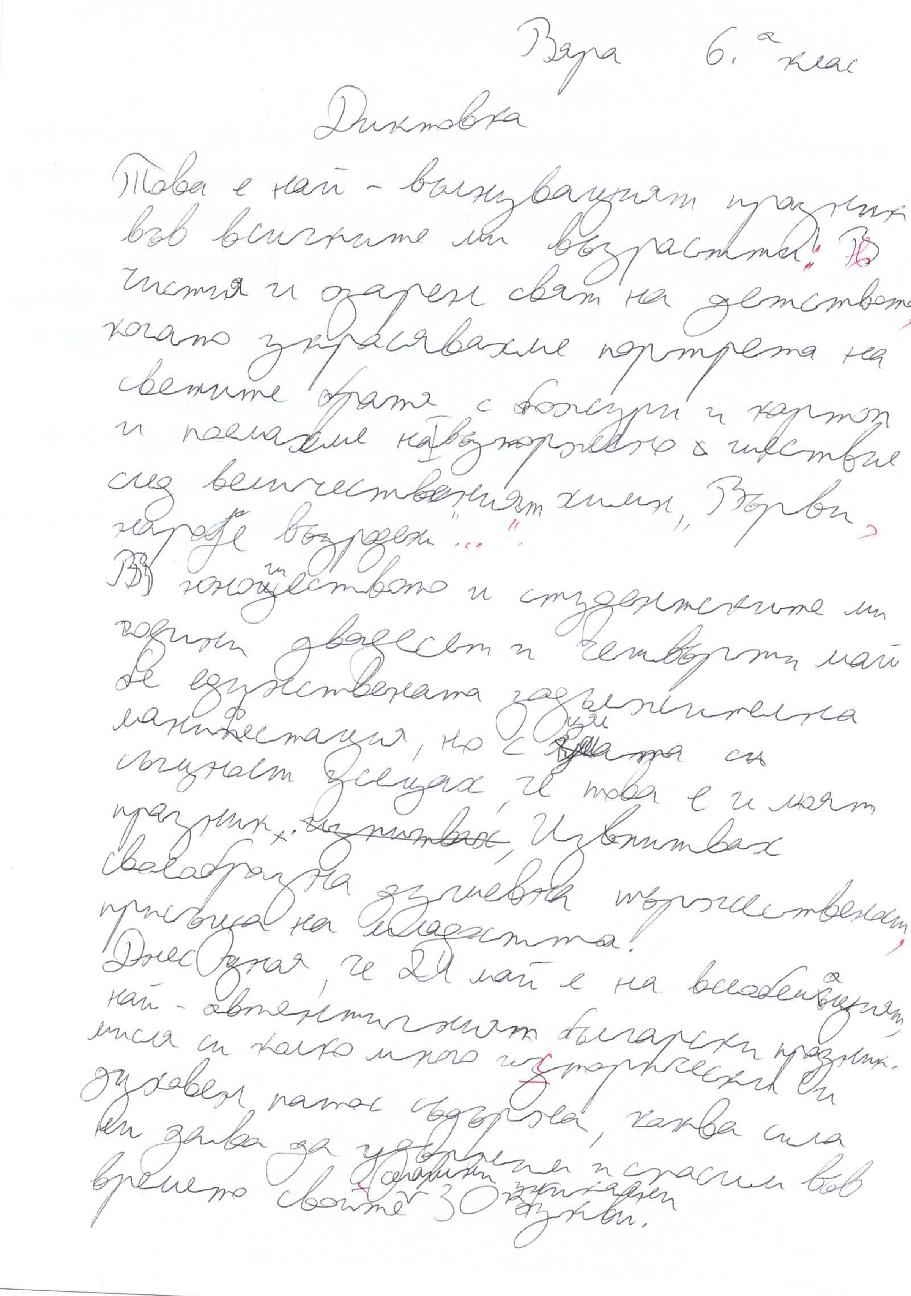 Вяра 6.а клас
Диктовка
Това е най - вълнуващият празник
във всичките ми възрастти: В
чистия и озарен свят на детството,
когато украсявахме портрета на
светите братя с божури и картон
и поемахме на възторжено шествие
след величественият химн „Върви,
народе възроден..."
В юношеството и студентските ми
години двадесет и четвърти май
бе единствената задължителна
манифестация, но с цялата си
същност усещах, че това е и моят
празник. Изпитвах
своеобразна душевна тържественост,
присъща на младостта.
Днес зная, че 24 май е на всеобемащият,
най - автентичният български празник.
мисля си колко много исторически и
духовен патос съдържа, каква сила
ни дава да удържим и спасим във
времето своите 30
букви.